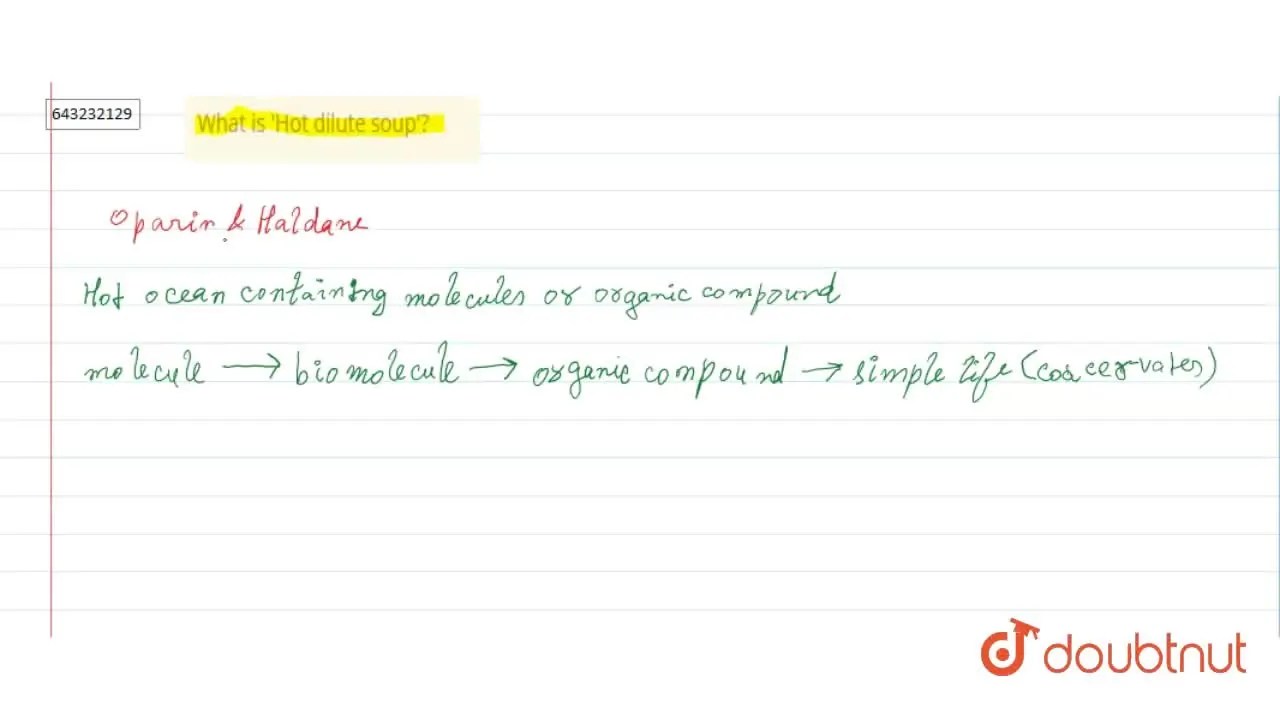 643232129
What is 'Hot dilute soup'?
Oparin & Haldane
Hot ocean containing molecules or organic compound
molecule → biomolecule → organic compound → simple life (coacervates)
doubtnut